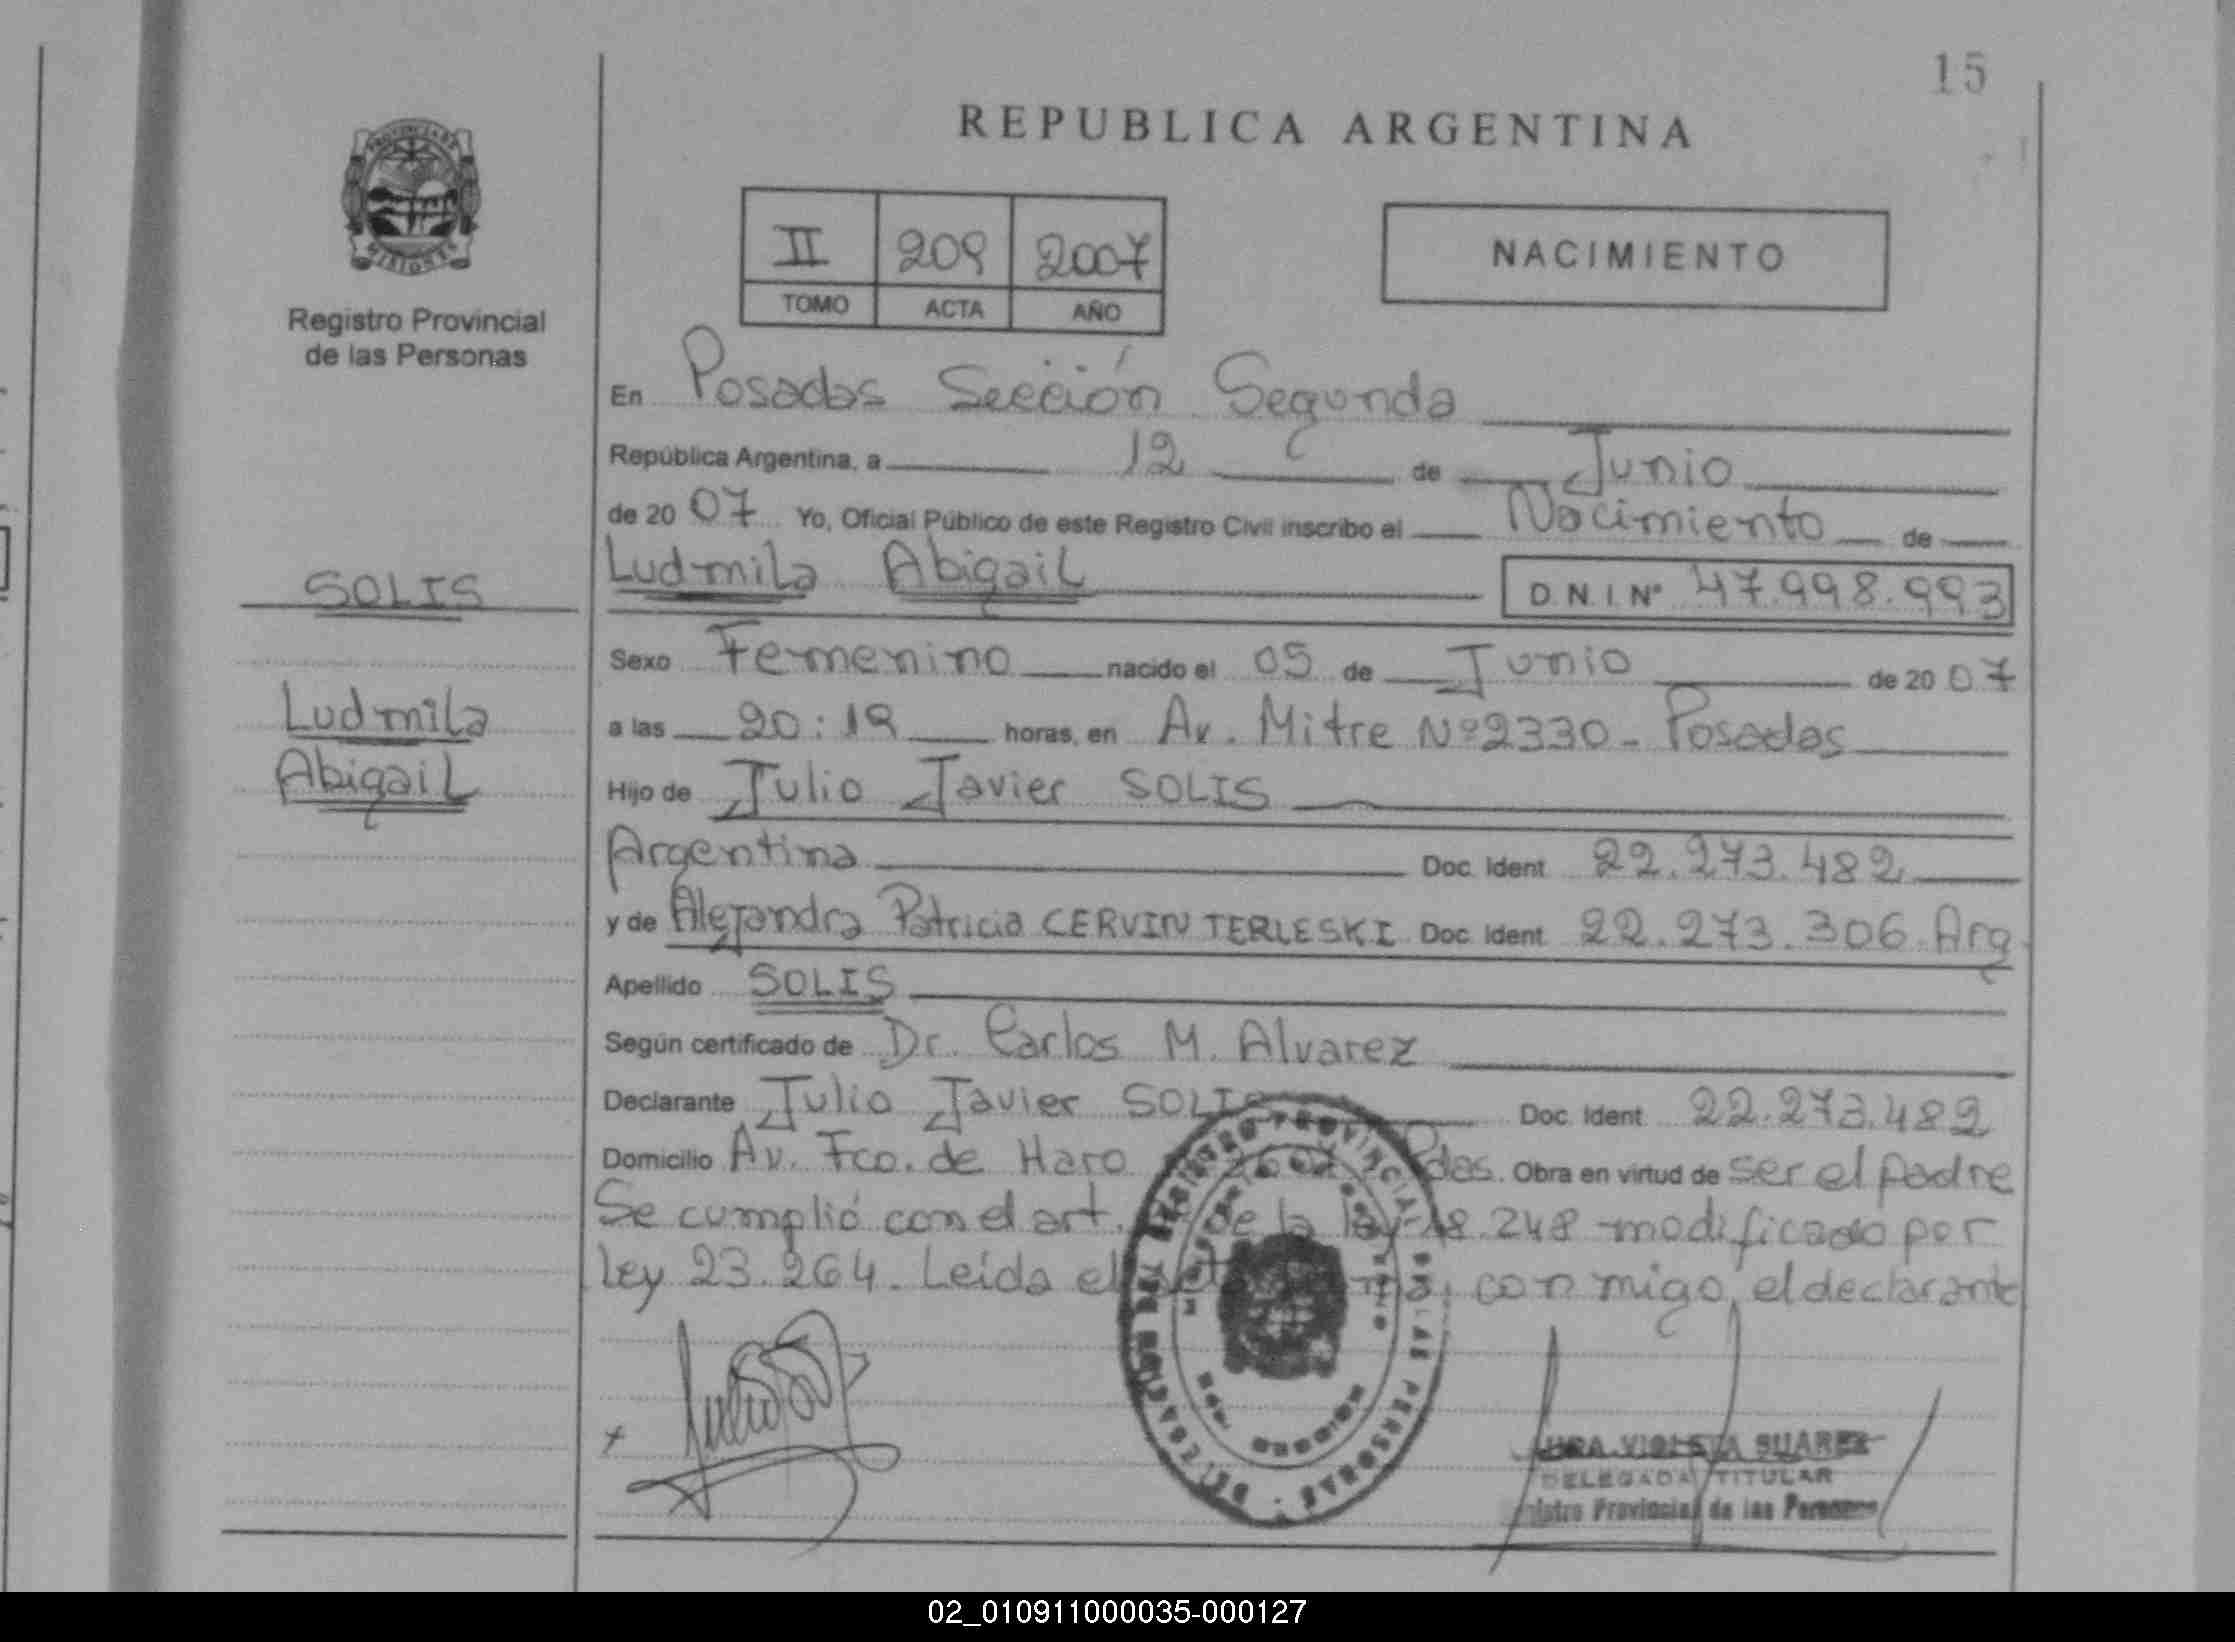 15
REPUBLICA ARGENTINA
PROVINCIA DE
MISIONES
Registro Provincial
de las Personas
II 209 2007
TOMO ACTA AÑO
NACIMIENTO
En Posadas Sección Segunda
República Argentina, a 12 de Junio
de 2007 Yo, Oficial Público de este Registro Civil inscribo el Nacimiento de
SOLIS
Ludmila Abigail D.N.I. Nº 47.998.993
Sexo Femenino nacido el 05 de Junio de 2007
Ludmila
a las 20:19 horas, en Av. Mitre Nº2330 - Posadas
Abigail
Hijo de Julio Javier SOLIS
Argentina Doc. Ident. 22.273.482
y de Alejandra Patricia CERVIN TERLESKI Doc. Ident. 22.273.306. Arg
Apellido SOLIS
Según certificado de Dr. Carlos M. Alvarez
Declarante Julio Javier SOLIS Doc. Ident. 22.273.482
Domicilio Av. Fco. de Haro Pdas. Obra en virtud de ser el padre
Se cumplió con el art. de la ley 18.248 modificado por
ley 23.264. Leída el conmigo, el declarante
REGISTRO PROVINCIAL DE LAS PERSONAS
VIOLETA SUAREZ
DELEGADA TITULAR
Registro Provincial de las Personas
02_010911000035-000127